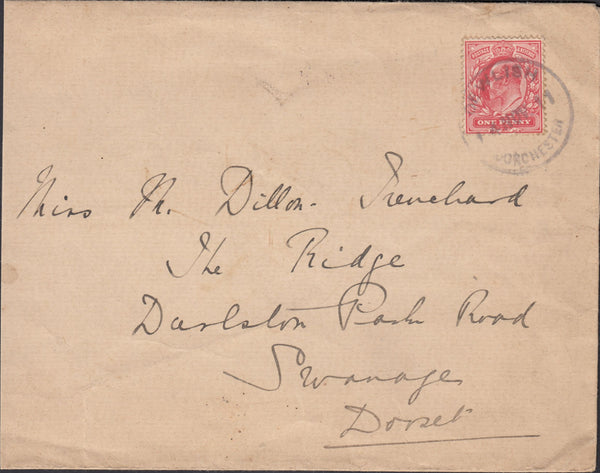 POSTAGE REVENUE
ONE PENNY
DORCHESTER
Miss M. Dillon-Trenchard
The Ridge
Darlston Park Road
Swanage
Dorset